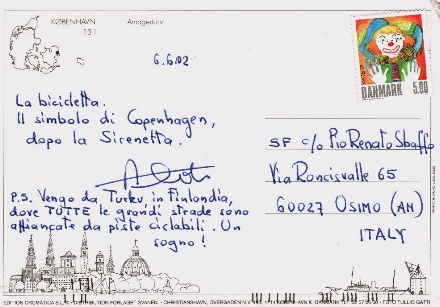 KØBENHAVN
131
Amagertorv
6.6.02
DANMARK
5.00
La bicicletta.
Il simbolo di Copenhagen,
dopo la Sirenetta.
P.S. Vengo da Turku, in Finlandia,
dove TUTTE le grandi strade sono
affiancate da piste ciclabili. Un
sogno!
SF c/o Pio Renato Sbaffo
Via Roncisvalle 65
60027 OSIMO (AN)
ITALY
FORLAGET SVANEN - CHRISTIANSHAVN, OVERGADEN N.V.
FOTO TULLIO GATTI